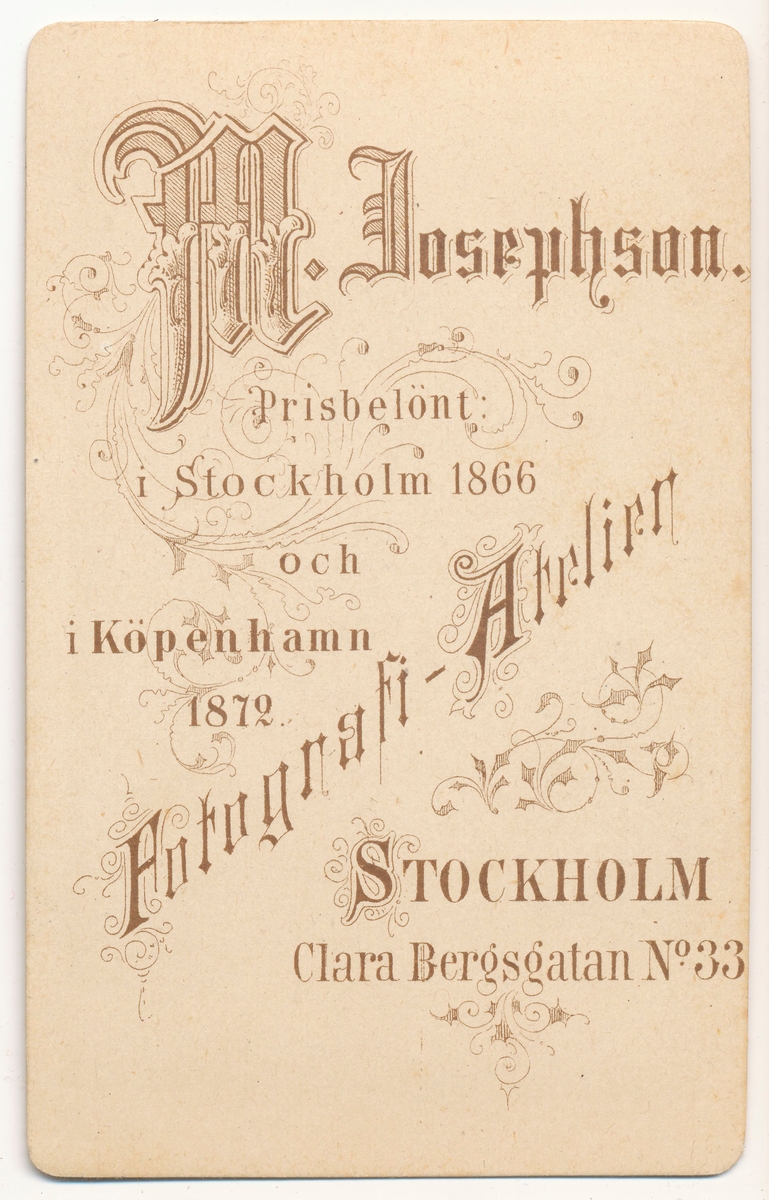 M. Josephson.
Prisbelönt:
i Stockholm 1866
och
i Köpenhamn
1872.
Fotografi-Atelier
STOCKHOLM
Clara Bergsgatan No. 33